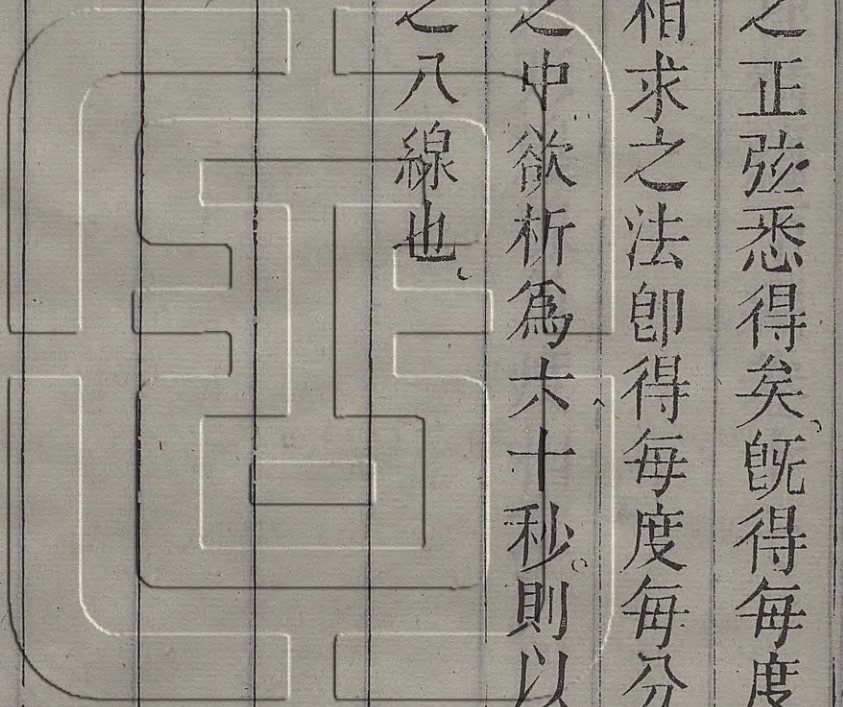 之正弦悉得矣、旣得每度
相求之法卽得每度每分
之中欲析爲六十秒。則以
之八線也、